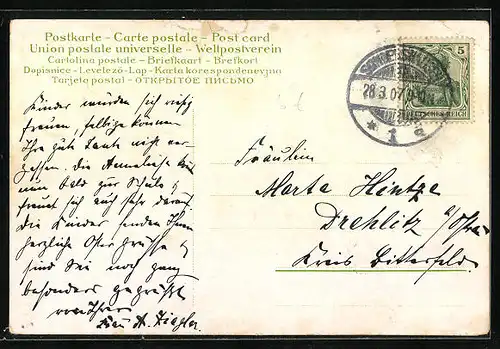 Postkarte – Carte postale – Post card
Union postale universelle – Weltpostverein
Cartolina postale – Briefkaart – Brefkort
Dopisnice – Levelező-Lap – Karta korespondencyjna
Tarjeta postal – ОТКРЫТОЕ ПИСЬМО
5
28.3.07
DEUTSCHES REICH
* 1 c
Kinder würden sich riesig
freuen, selbige können
Ihre gute Tante nicht ver-
gessen. Die Annaliese
nun bald zur Schule &
freut sich auch sehr darauf.
Die Kinder senden Ihnen
herzliche Ostergrüsse &
sind Sie noch ganz
besonders gegrüßt
von Ihrer
Frau A. Ziegler.
Fräulein
Marta Hintze
Drehlitz
Kreis Bitterfeld.